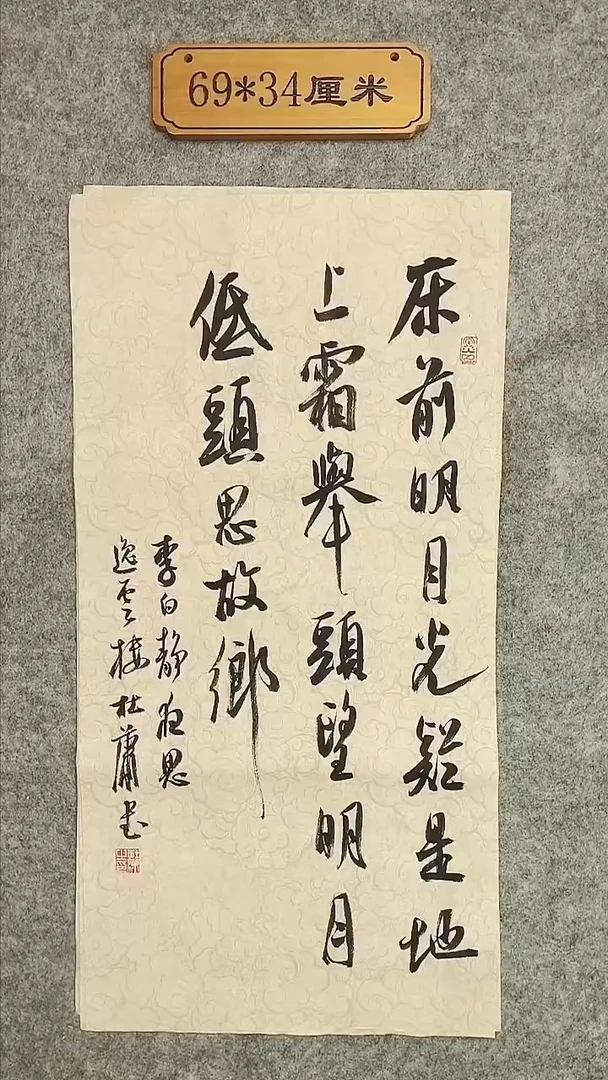 69*34厘米
床前明月光疑是地
上霜舉頭望明月
低頭思故鄉
李白靜夜思
逸雲樓杜蕭書